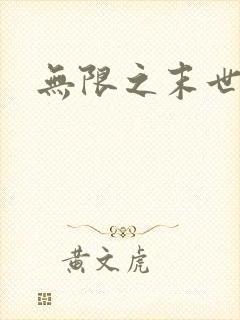 無限之末世
黃文虎